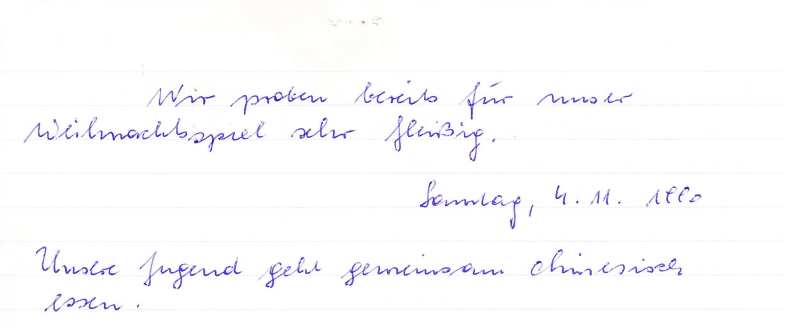 Wir proben bereits für unser
Weihnachtsspiel sehr fleißig.
Sonntag, 4. 11. 1990
Unsere Jugend geht gemeinsam chinesisch
essen.